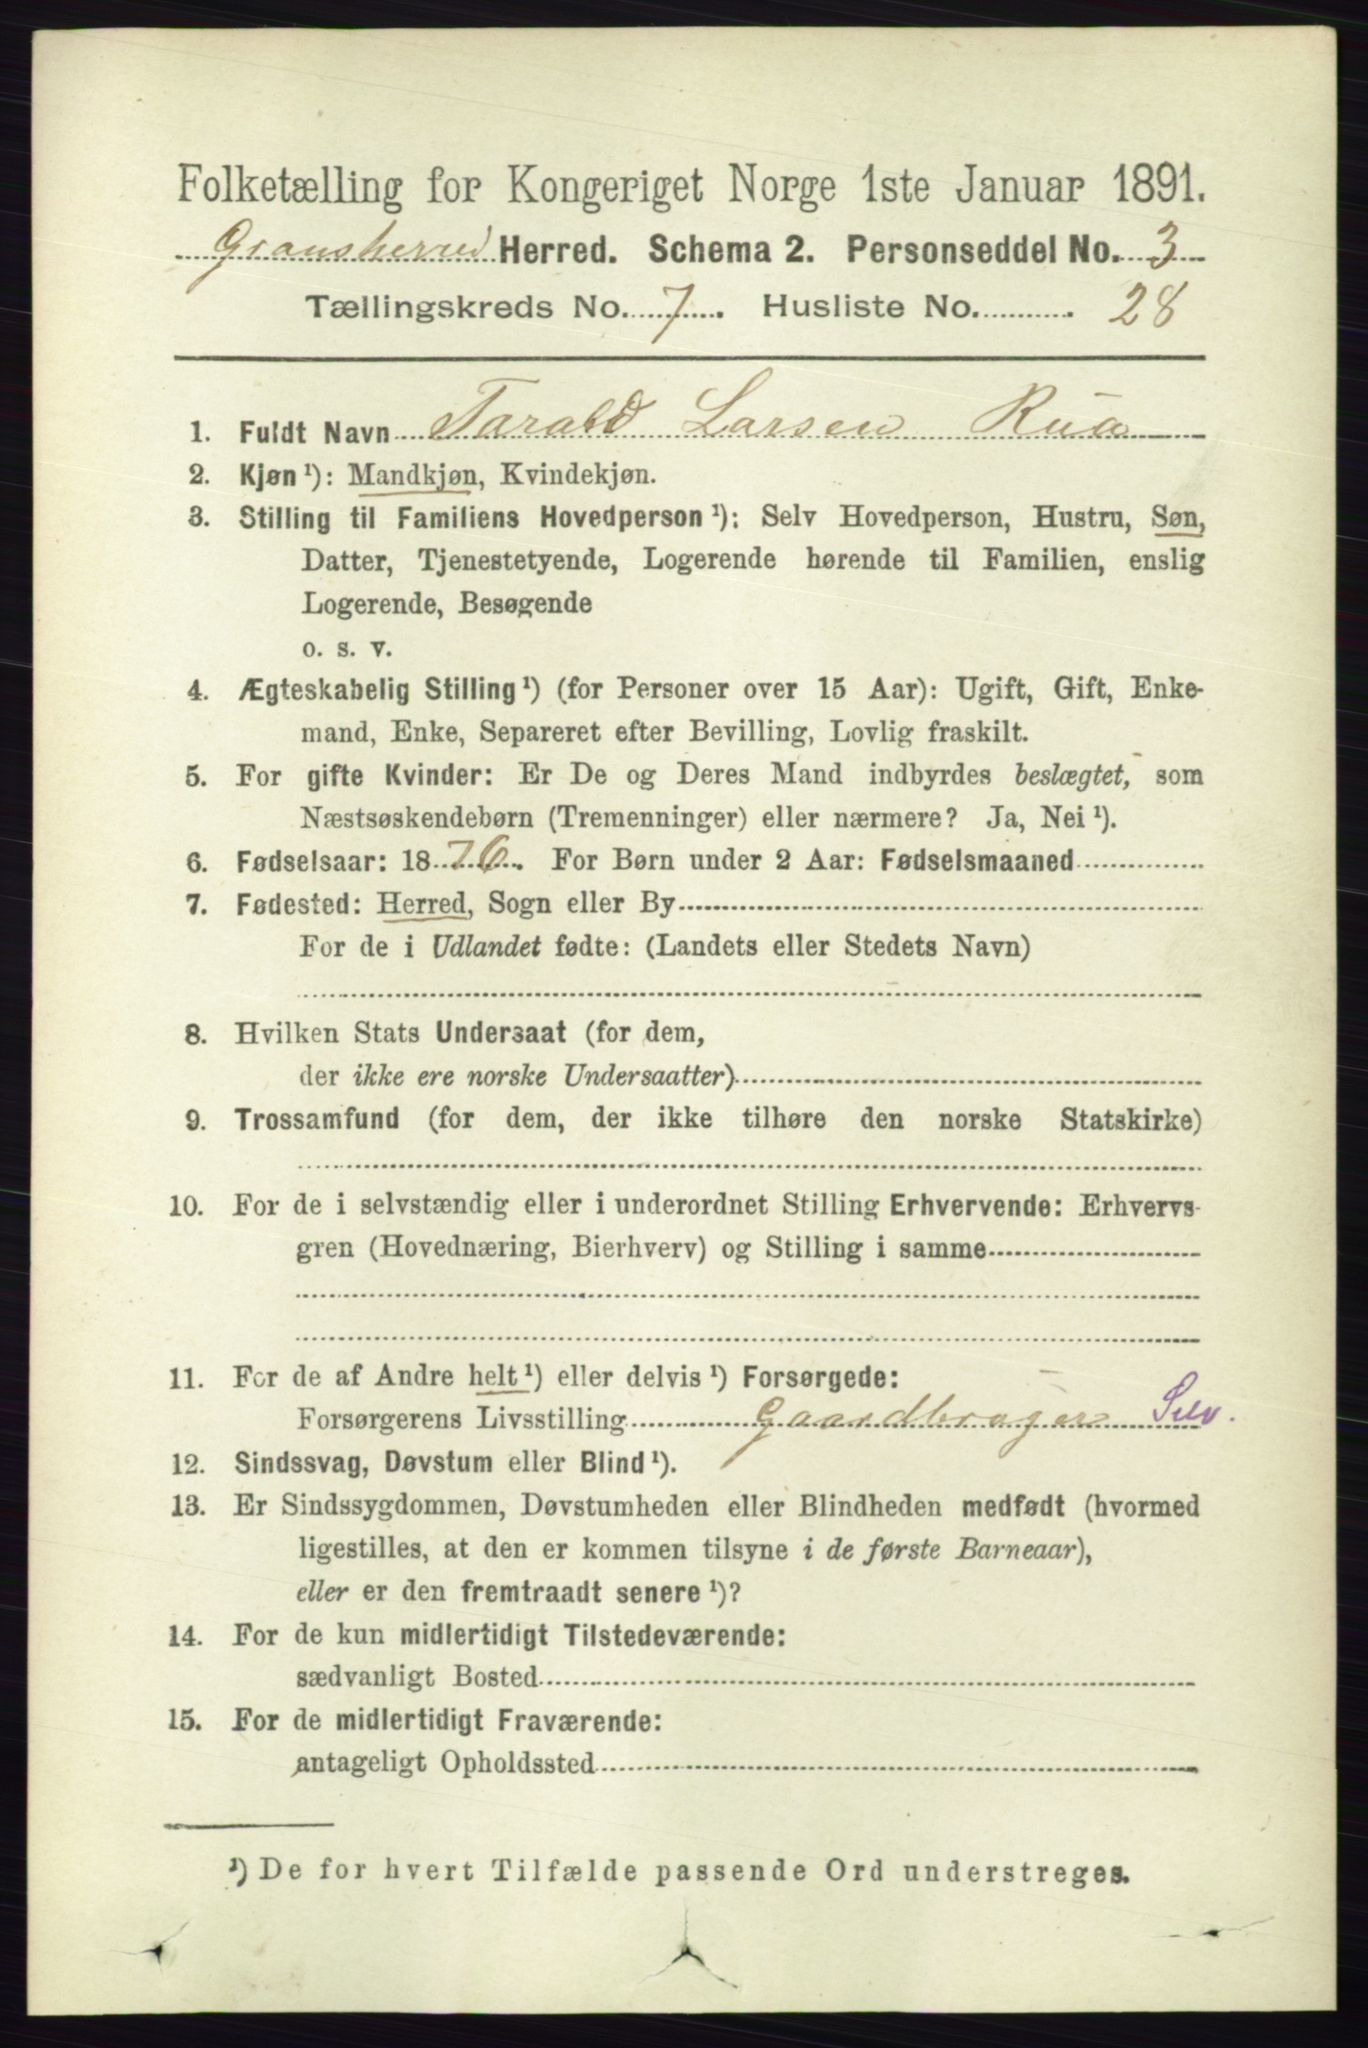 Folketælling for Kongeriget Norge 1ste Januar 1891.
Gransherred Herred. Schema 2. Personseddel No. 3
Tællingskreds No. 7. Husliste No. 28
1. Fuldt Navn Tarald Larsen Rua
2. Kjøn ¹): Mandkjøn, Kvindekjøn.
3. Stilling til Familiens Hovedperson ¹): Selv Hovedperson, Hustru, Søn,
Datter, Tjenestetyende, Logerende hørende til Familien, enslig
Logerende, Besøgende
o. s. v.
4. Ægteskabelig Stilling ¹) (for Personer over 15 Aar): Ugift, Gift, Enke-
mand, Enke, Separeret efter Bevilling, Lovlig fraskilt.
5. For gifte Kvinder: Er De og Deres Mand indbyrdes beslægtet, som
Næstsøskendebørn (Tremenninger) eller nærmere? Ja, Nei ¹).
6. Fødselsaar: 1876. For Børn under 2 Aar: Fødselsmaaned
7. Fødested: Herred, Sogn eller By
For de i Udlandet fødte: (Landets eller Stedets Navn)
8. Hvilken Stats Undersaat (for dem,
der ikke ere norske Undersaatter)
9. Trossamfund (for dem, der ikke tilhøre den norske Statskirke)
10. For de i selvstændig eller i underordnet Stilling Erhvervende: Erhvervs-
gren (Hovednæring, Bierhverv) og Stilling i samme
11. For de af Andre helt ¹) eller delvis ¹) Forsørgede:
Forsørgerens Livsstilling Gaardbruger Selv.
12. Sindssvag, Døvstum eller Blind ¹).
13. Er Sindssygdommen, Døvstumheden eller Blindheden medfødt (hvormed
ligestilles, at den er kommen tilsyne i de første Barneaar),
eller er den fremtraadt senere ¹)?
14. For de kun midlertidigt Tilstedeværende:
sædvanligt Bosted
15. For de midlertidigt Fraværende:
antageligt Opholdssted
¹) De for hvert Tilfælde passende Ord understreges.